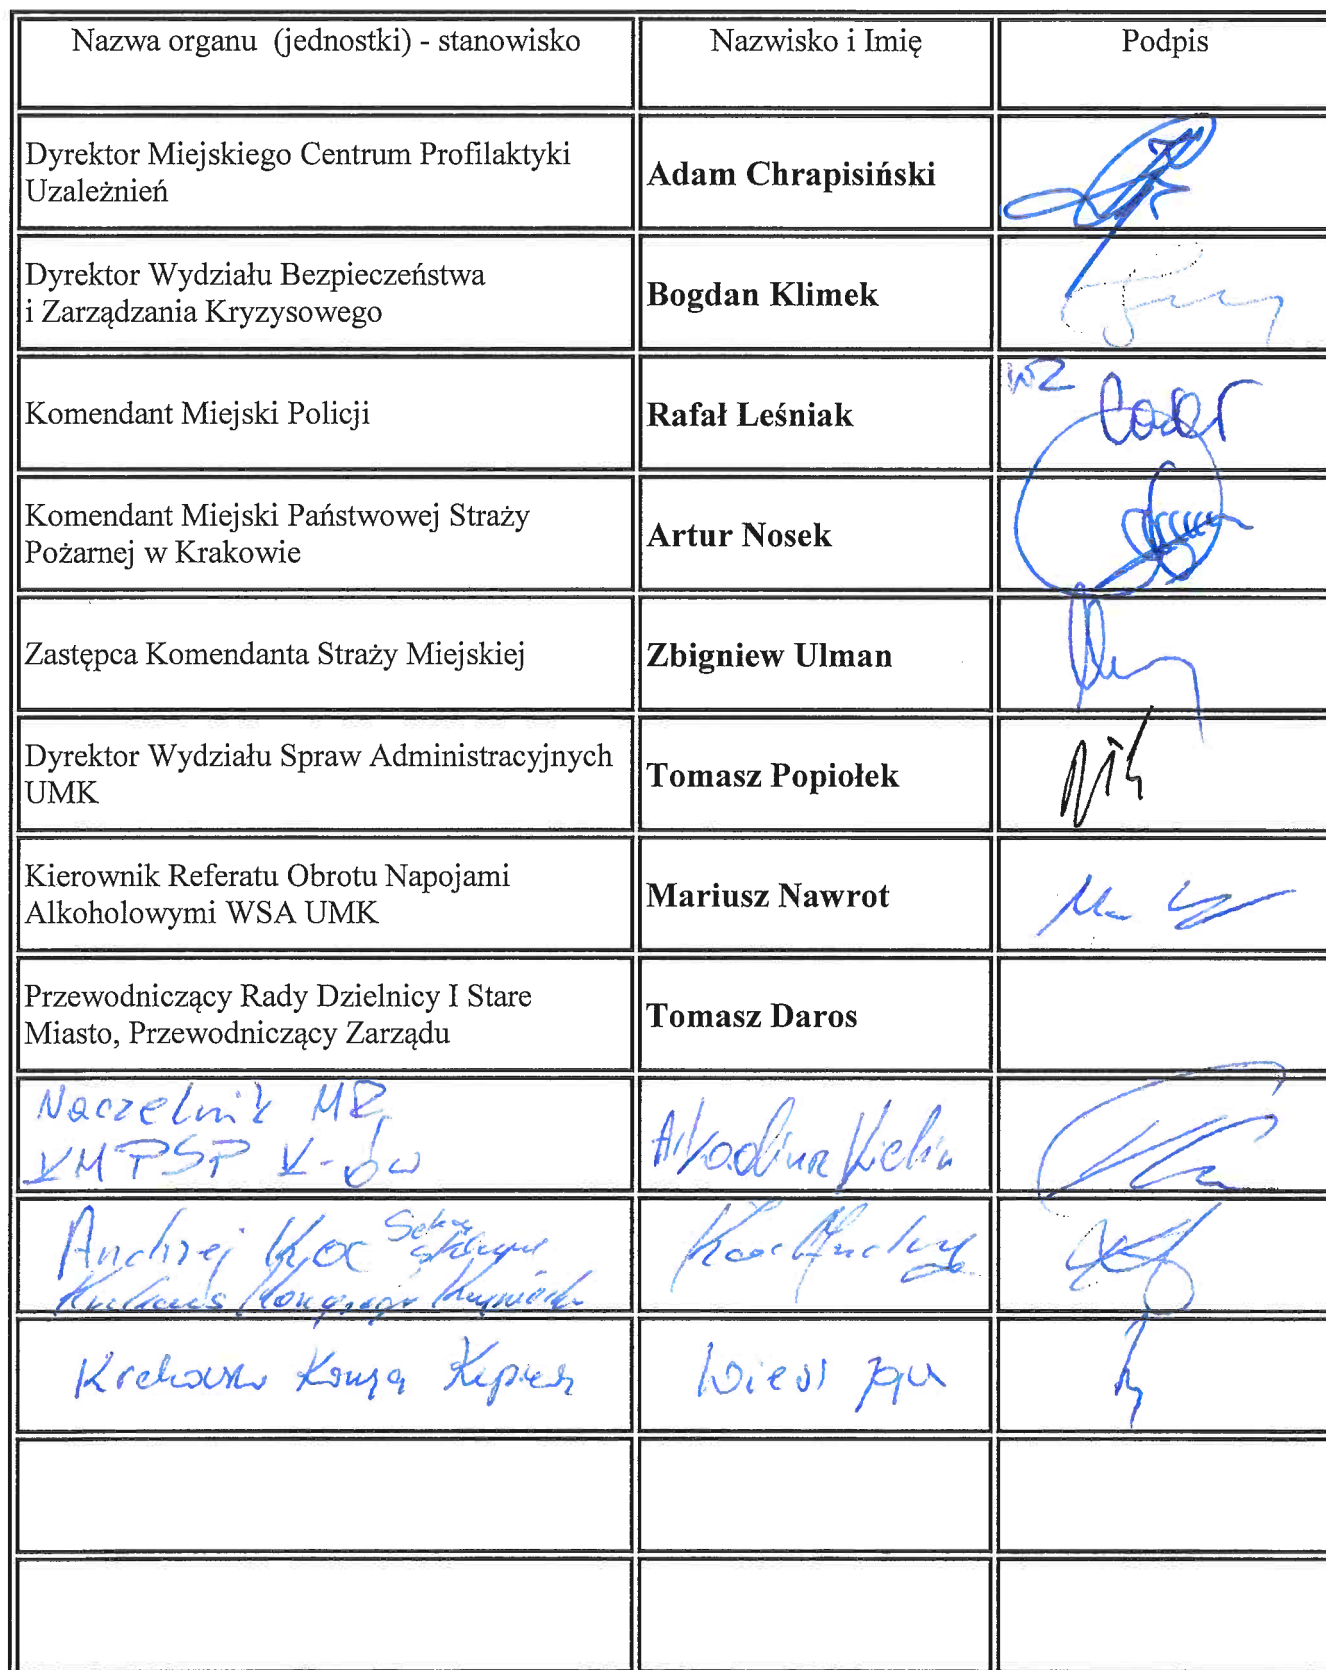 Nazwa organu (jednostki) - stanowisko
Nazwisko i Imię
Podpis
Dyrektor Miejskiego Centrum Profilaktyki
Uzależnień
Adam Chrapisiński
Dyrektor Wydziału Bezpieczeństwa
i Zarządzania Kryzysowego
Bogdan Klimek
Komendant Miejski Policji
Rafał Leśniak
WZ
Komendant Miejski Państwowej Straży
Pożarnej w Krakowie
Artur Nosek
Zastępca Komendanta Straży Miejskiej
Zbigniew Ulman
Dyrektor Wydziału Spraw Administracyjnych
UMK
Tomasz Popiołek
Kierownik Referatu Obrotu Napojami
Alkoholowymi WSA UMK
Mariusz Nawrot
Przewodniczący Rady Dzielnicy I Stare
Miasto, Przewodniczący Zarządu
Tomasz Daros
Naczelnik MR
KM PSP K-ów
Arkadiusz
Andrzej Koc
Koc Andrzej